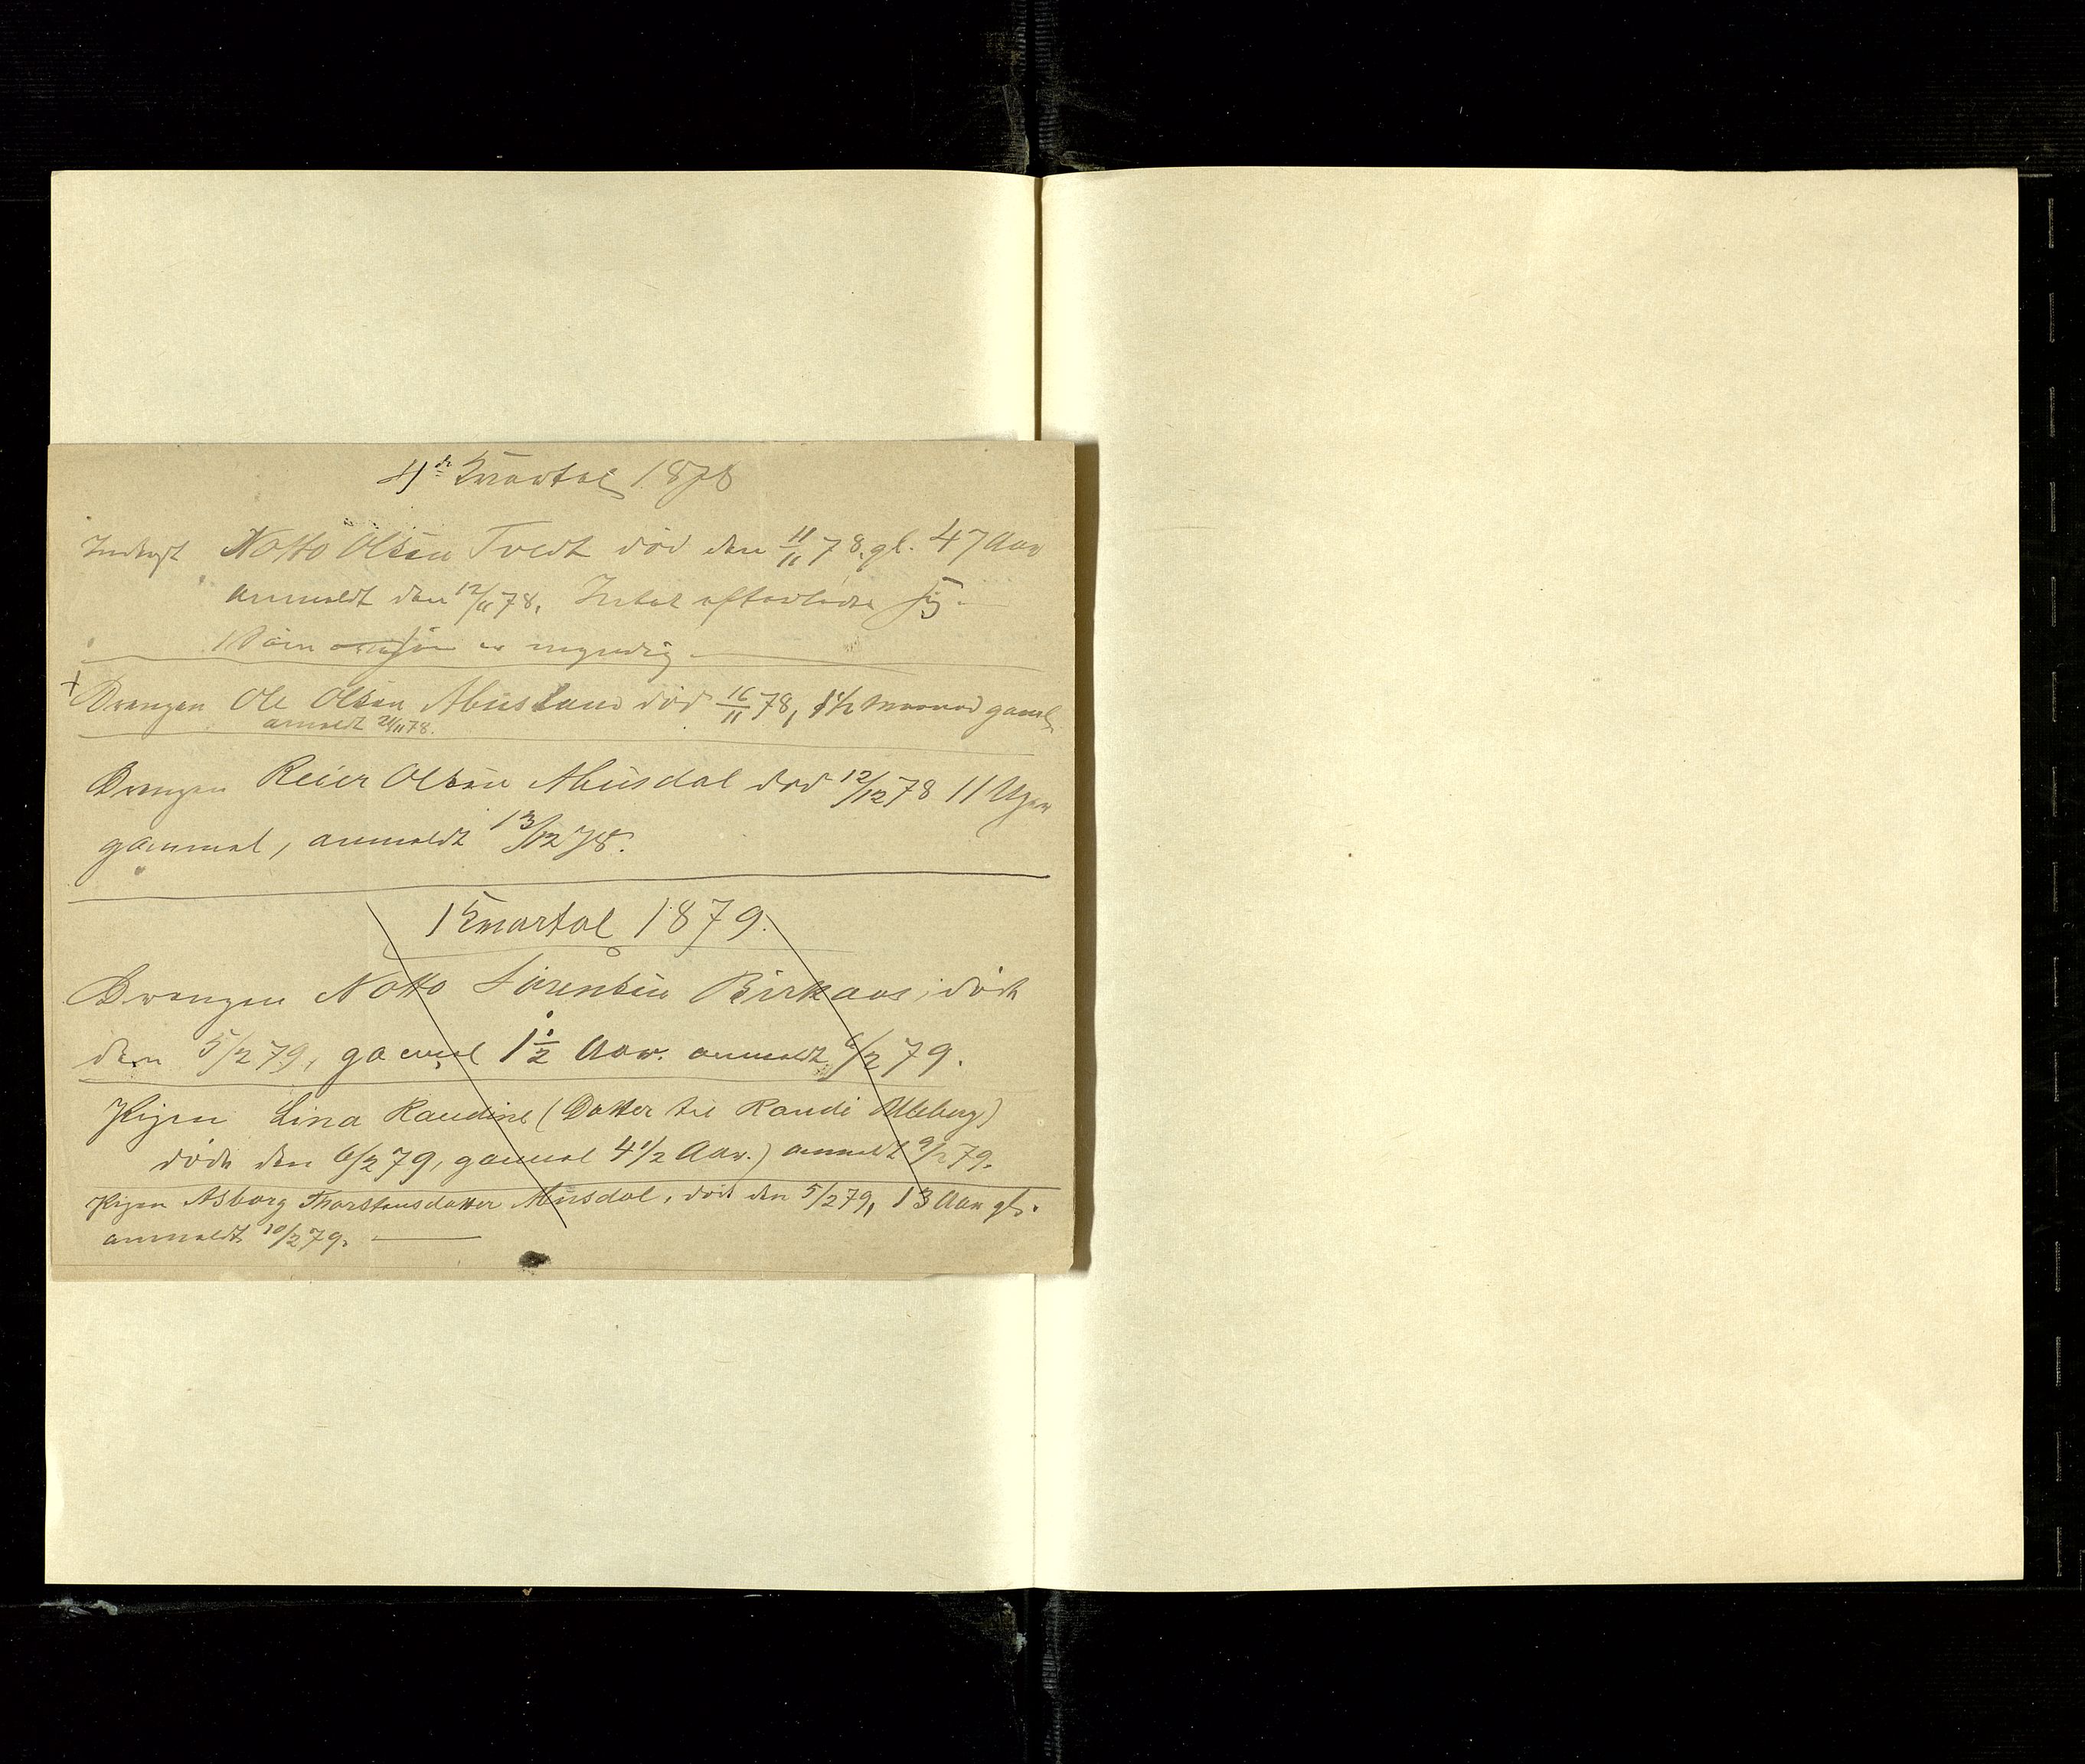 4de Kvartal 1878
Notto Olsen Tvedt død den 11/11 78. gl. 47 Aar
anmeldt den 12/11 78, Intet efterladt sig.
er myndig
+ Drengen Ole Olsen Abusland død 16/11 78, 1½ Maaned gaml
anmeldt 21/11 78.
Drengen Reier Olsen Abusdal død 12/12 78 11 Uger
gammel, anmeldt 13/12 78.
1 Kvartal 1879.
Drengen Notto Sørensen Birkaas, døde
den 5/2 79, gammel 1½ Aar. anmeldt 6/2 79.
Pigen Lina Raudine (Datter til Raudi Uleberg)
døde den 6/2 79, gammel 4½ Aar.) anmeldt 9/2 79.
Pigen Asborg Thorstensdatter Abusdal, død den 5/2 79, 13 Aar gl.
anmeldt 10/2 79.